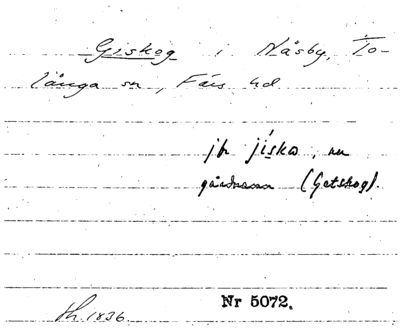 Giskog i Näsby, To-
långa sn, Färs hd
jfr jiska, nu
gårdnamn (Getskog).
Nr 5072.
1836.